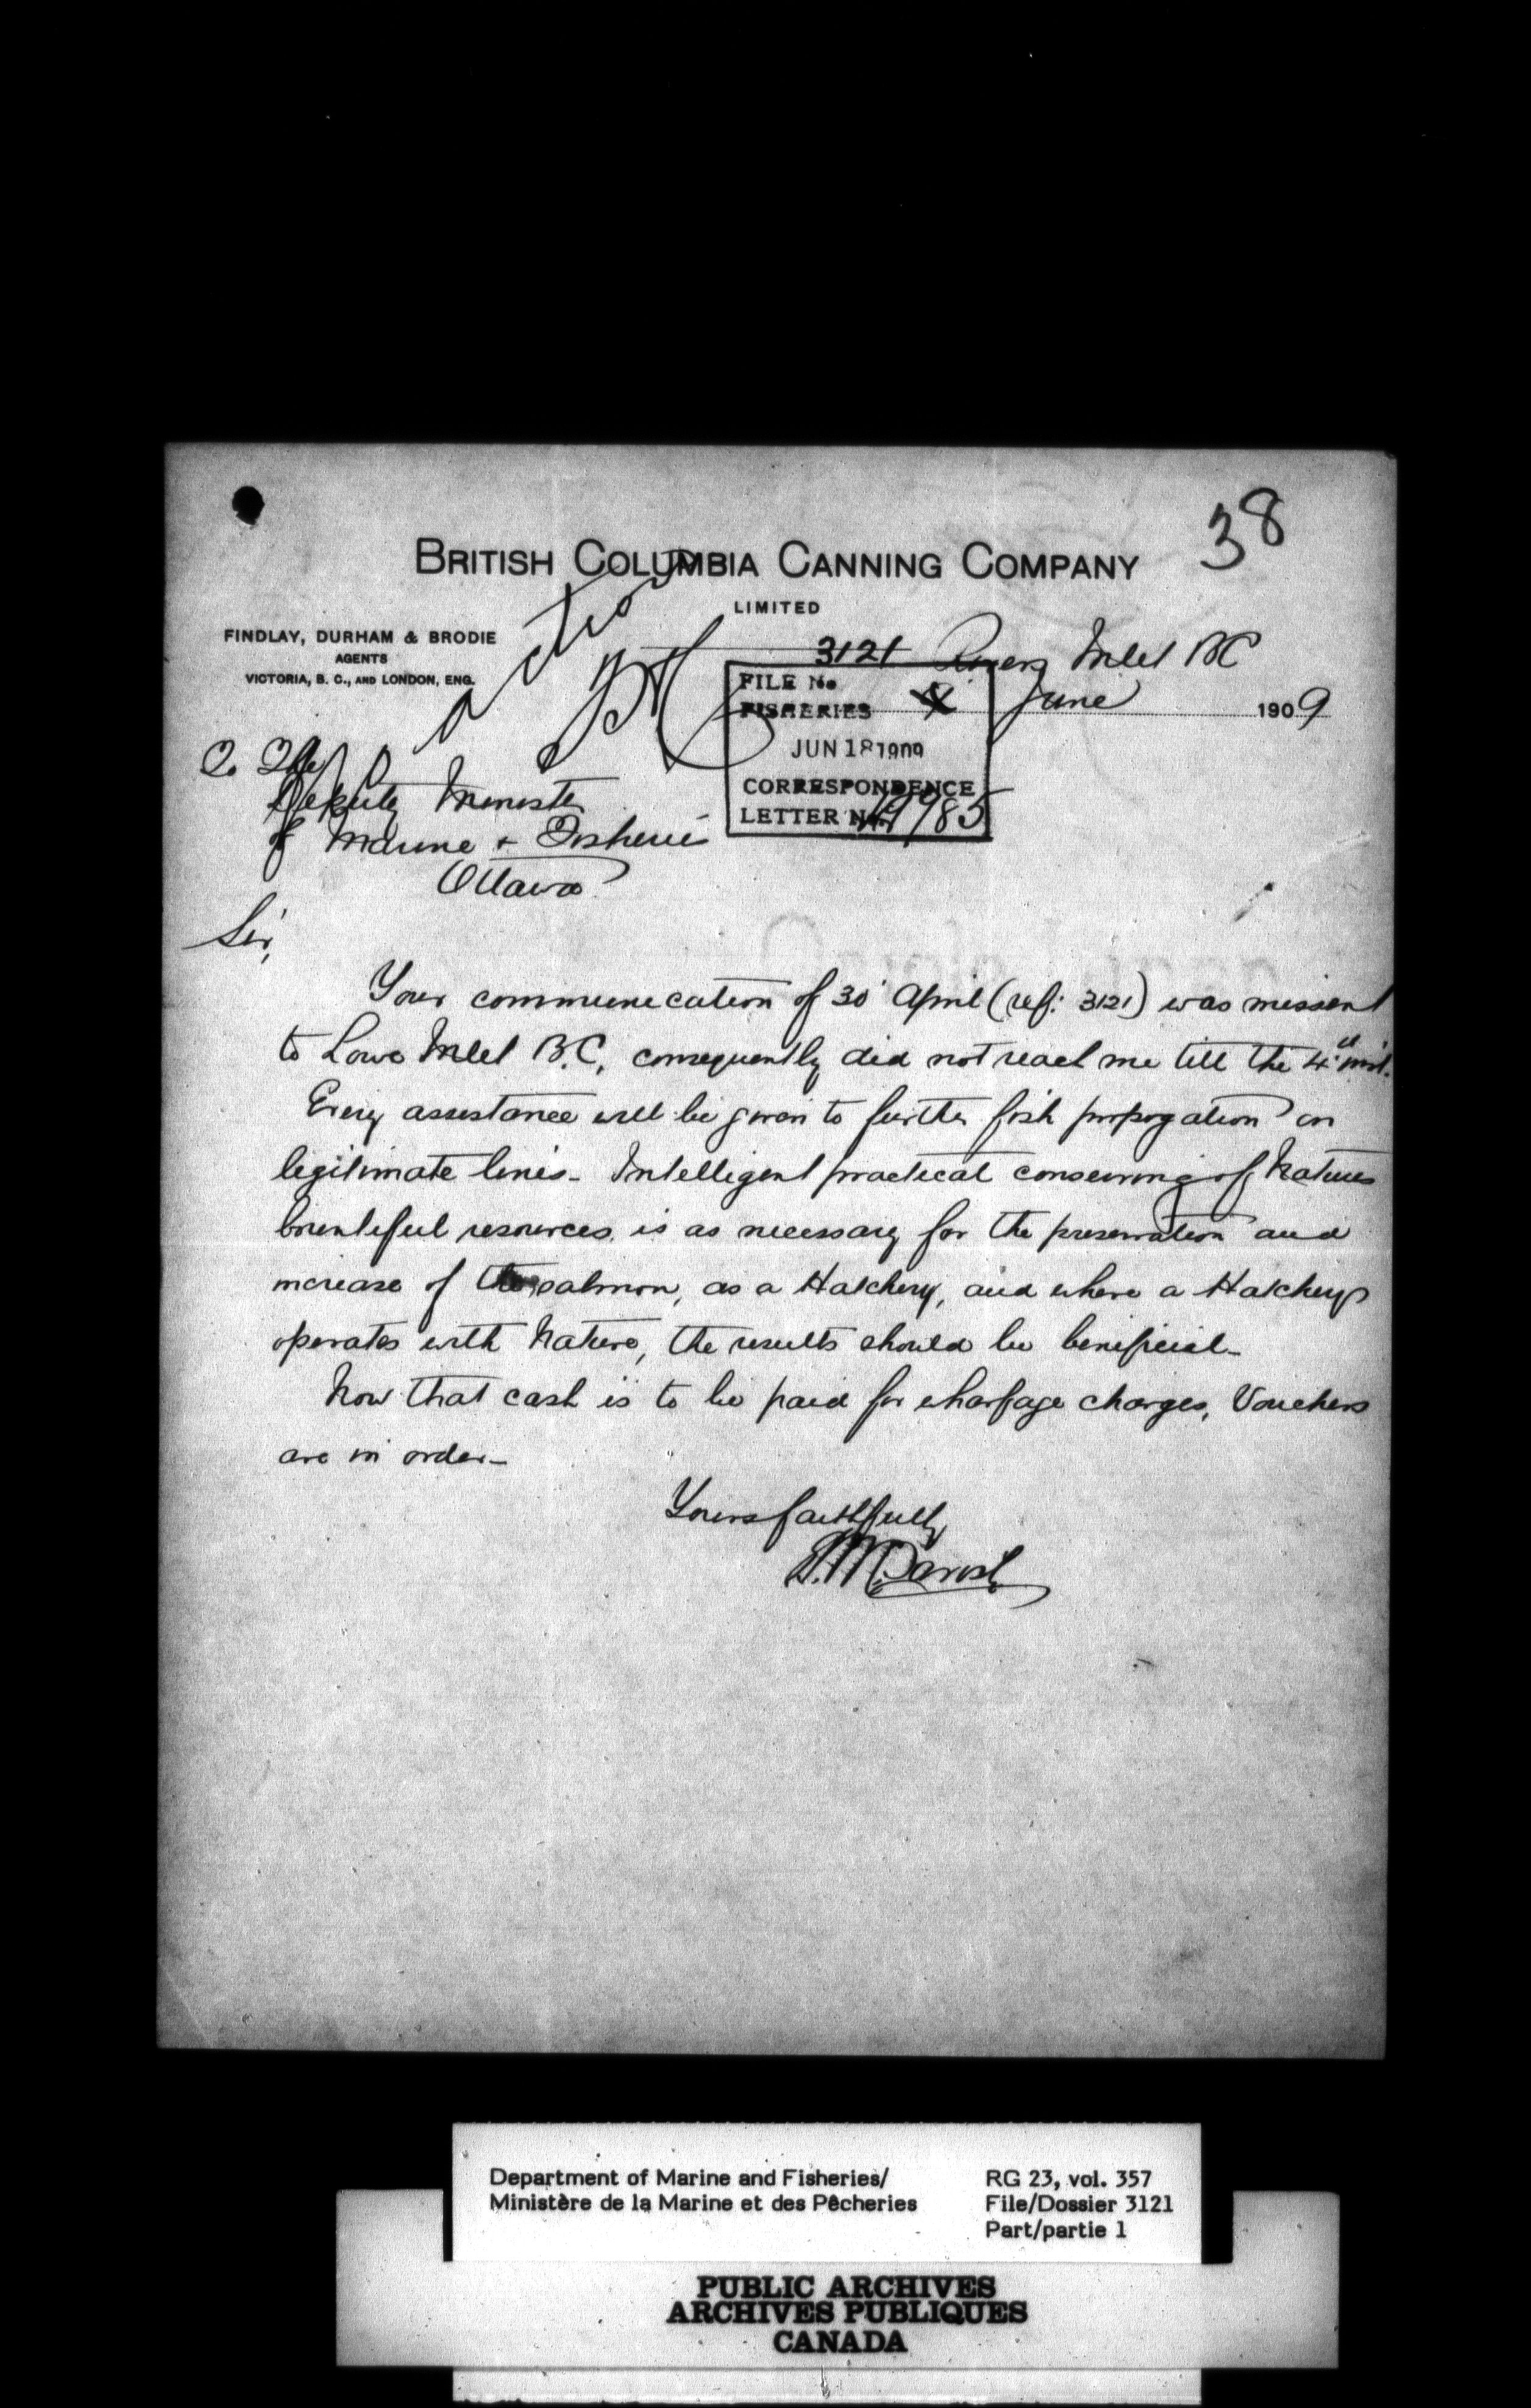 38
BRITISH COLUMBIA CANNING COMPANY
LIMITED
FINDLAY, DURHAM & BRODIE
AGENTS
VICTORIA, B. C., AND LONDON, ENG.
3121 Rivers Inlet BC
FILE No.
FISHERIES
June 1909
JUN 18 1909
CORRESPONDENCE
LETTER No. 985
To The
Deputy Minister
of Marine + Fisheries
Ottawa
Sir,
Your communication of 30 April (ref: 3121) was missent
to Lowe Inlet B.C, consequently did not reach me till the 4th inst.
Every assistance will be given to further fish propogation on
legitimate lines - Intelligent practical conserving of Natures
bountiful resources, is as necessary for the preservation and
increase of the salmon, as a Hatchery, and where a Hatchery
operates with Nature, the results should be beneficial -
Now that cash is to be paid for wharfage charges, Vouchers
are in order -
Yours faithfully
Department of Marine and Fisheries/
Ministère de la Marine et des Pêcheries
RG 23, vol. 357
File/Dossier 3121
Part/partie 1
PUBLIC ARCHIVES
ARCHIVES PUBLIQUES
CANADA